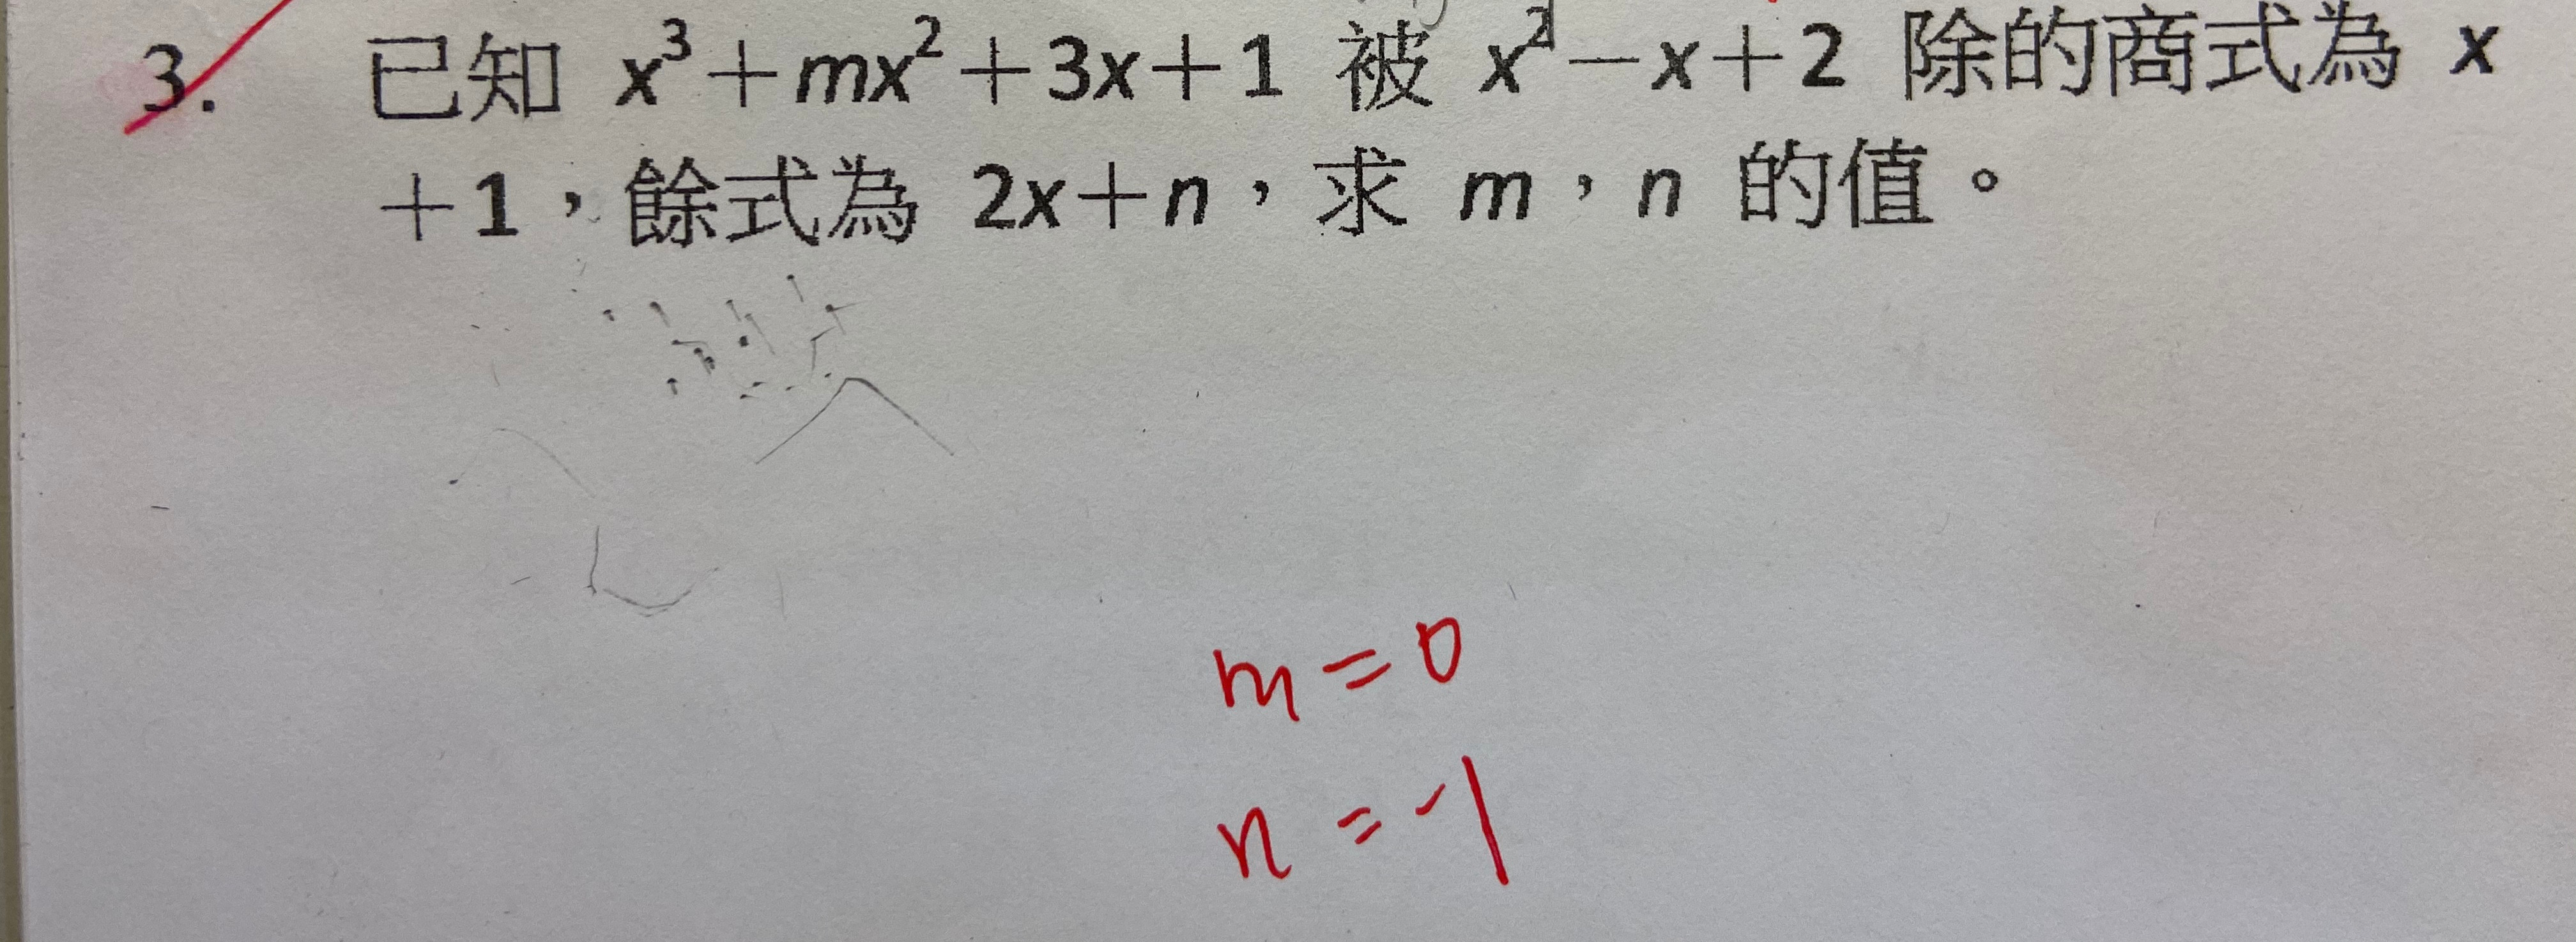 3. 已知 x³+mx²+3x+1 被 x²-x+2 除的商式為 x
+1，餘式為 2x+n，求 m，n 的值。
m=0
n=-1